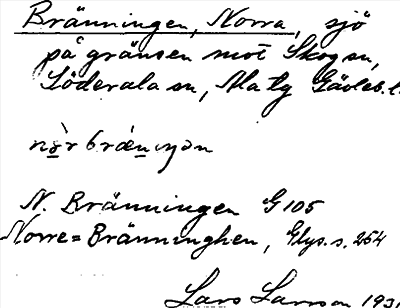 Bränningen, Norra, sjö
på gränsen mot Skog sn,
Söderala sn, Ala tg Gävleb. l.
nò̱r bræ̀nιŋən
N. Bränningen G 105
Norre=Bränninghen, Glys. s. 254
Lars Larsson 1931